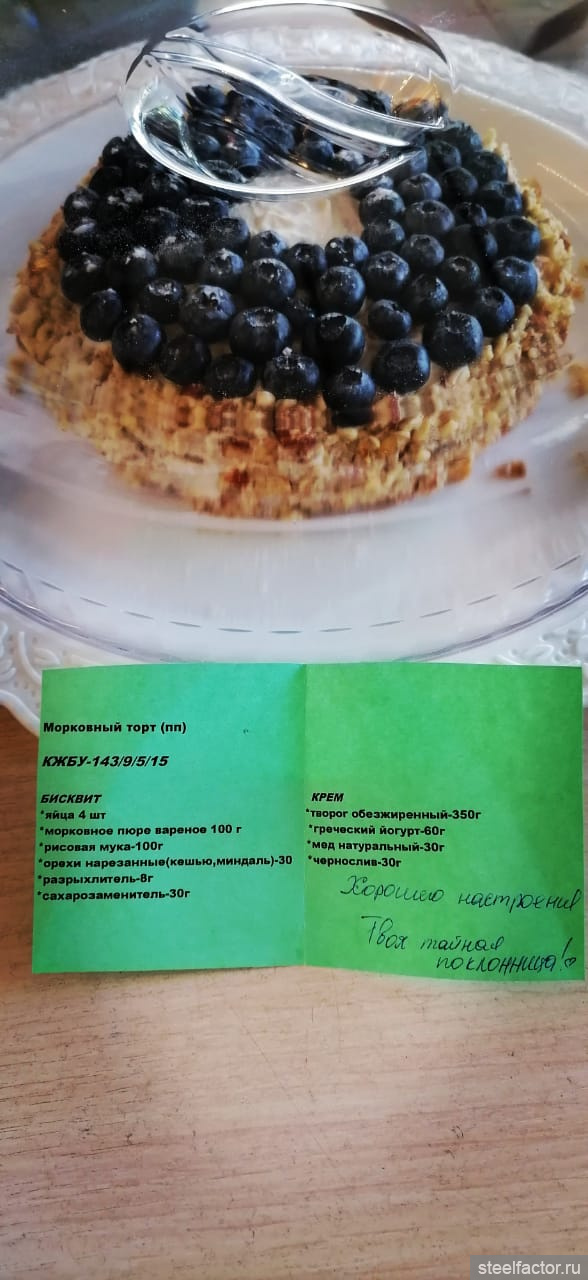 Морковный торт (пп)
КЖБУ-143/9/5/15
БИСКВИТ
*яйца 4 шт
*морковное пюре вареное 100 г
*рисовая мука-100г
*орехи нарезанные(кешью,миндаль)-30
*разрыхлитель-8г
*сахарозаменитель-30г
КРЕМ
*творог обезжиренный-350г
*греческий йогурт-60г
*мед натуральный-30г
*чернослив-30г
Хорошего настроения
Твоя тайная
поклонница!
steelfactor.ru